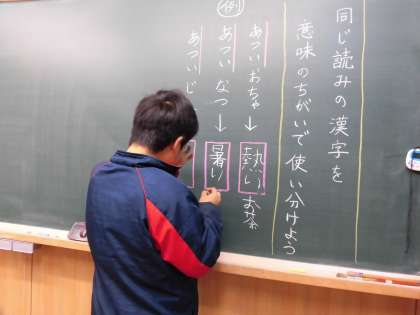 同じ読みの漢字を
意味のちがいで使い分けよう
例
あついおちゃ→熱いお茶
あついなつ→暑い
あついじ